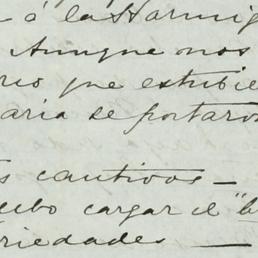 - á la Harmig
Aunque nos
rio que estubie
aria se portaro
s cautivos —
ubo cargar el "b
riedades —